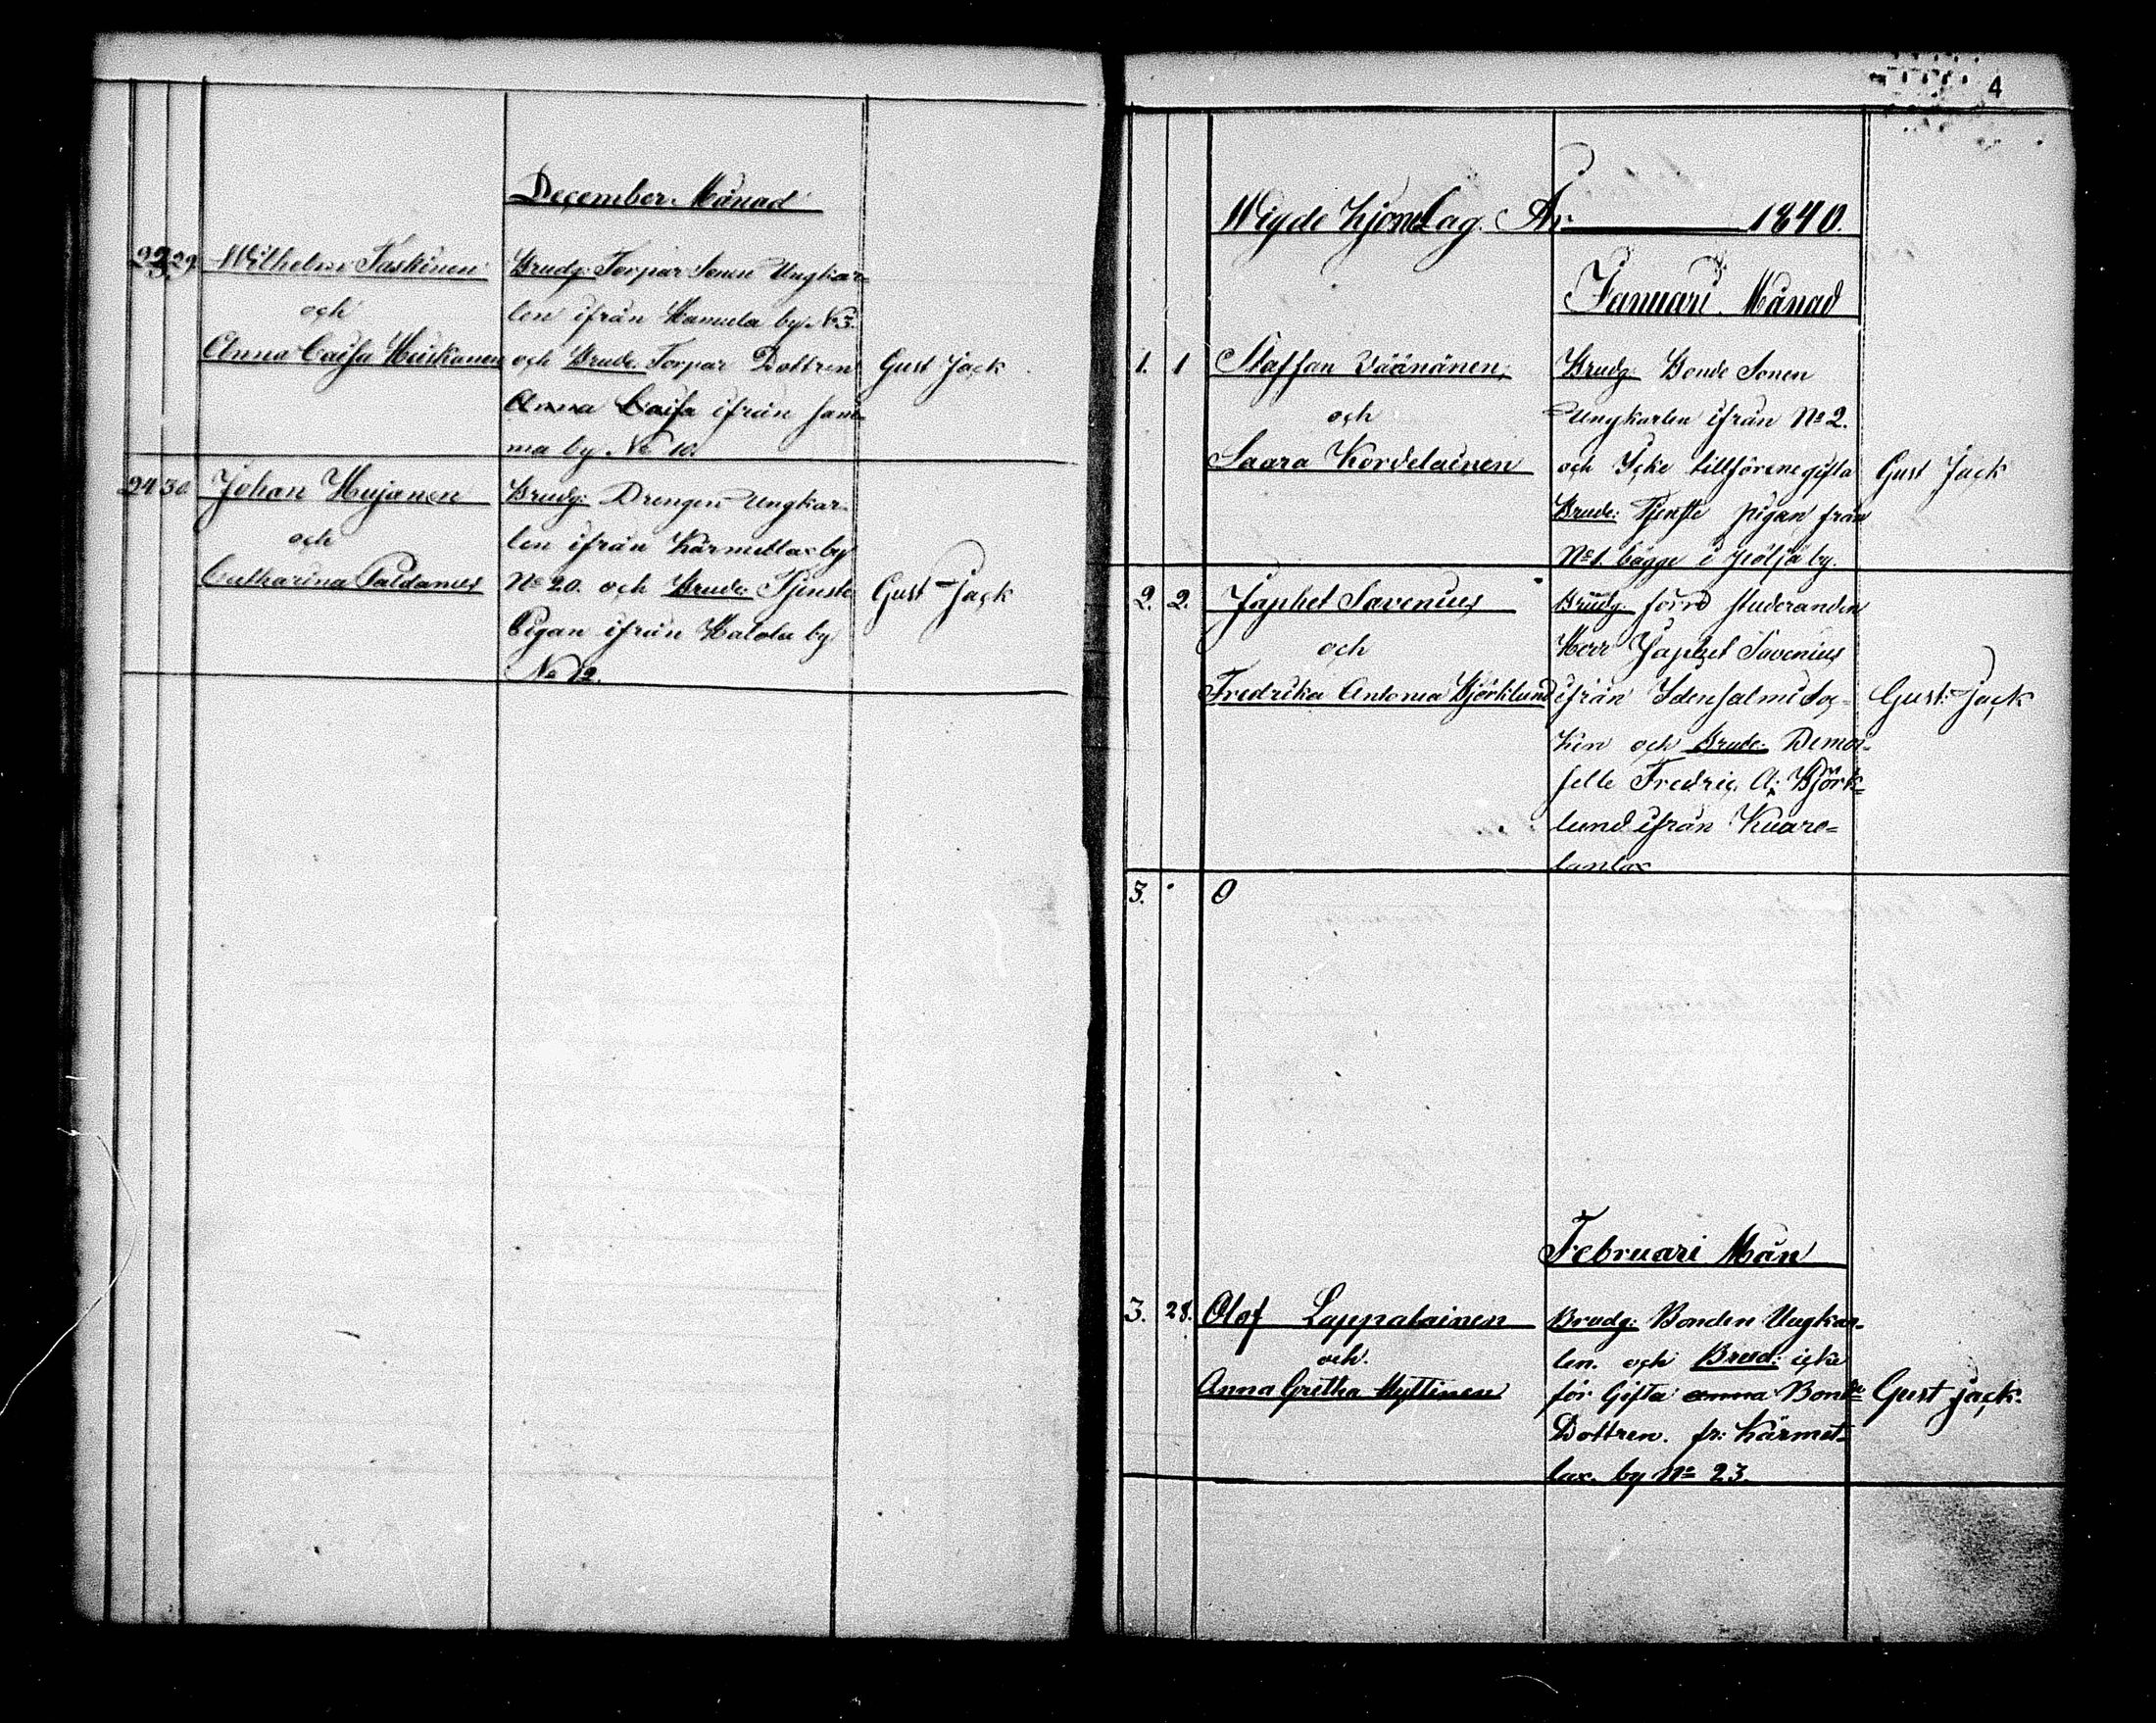 December Månad
23 29 Wilhelm Taskinen Brudg: Torpar Sonen Ungkar-
och len ifrån Hamula by No 3.
Anna Caisa Huskonen och Brude. Torpar Dottren Gust Jack
Anna Caisa ifrån sam-
ma by No 10.
24 30 Johan Hujanen Brudg: Drengen Ungkar-
och len ifrån Kärmellax by
Catharina Paldanius No 20. och Brude: Tjenste Gust Jack
Pigan ifrån Halola by
No 12.
4
Wigde Hjonelag. År 1840.
Januari Månad
1. 1 Staffan Väänänen Brudg: Bonde Sonen
och Ungkarlen ifrån No 2.
Saara Kordelainen och Icke tillförene gifta Gust Jack
Brude: Tjenste pigan från
No 1. bägge i Pöljä by.
2. 2. Japhet Savenius Brudg: förre studeranden
och Herr Japhet Savenius
Fredrika Antonia Björklund ifrån Idensalmi Soc- Gust: Jack
ken och Brude: Demoi-
selle Fredric. A: Björk-
lund ifrån
lanlax
3. 0
Februari Mån
3. 28. Olof Lappalainen Brudg: Bonden Ungkar-
och. len. och Brud: icke
Anna Gretha Myttinen för Gifta anna Bonde Gust Jack.
Dottren. fr: Kärmet-
lax. by No 23.